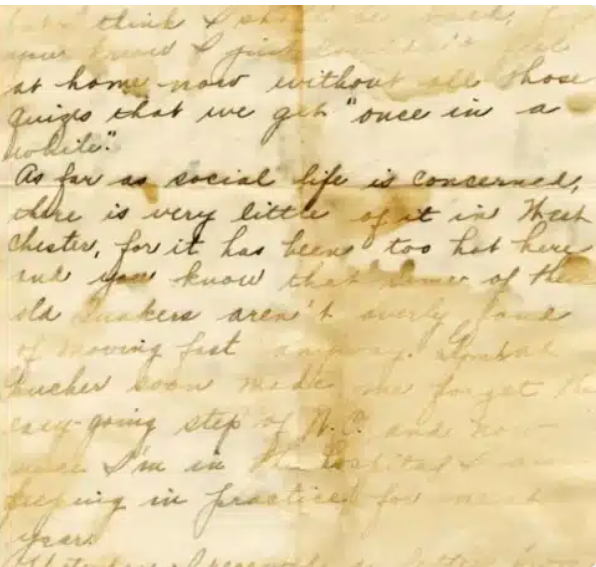 think I
you know I just couldn't feel
at home now without all those
quizes that we get "once in a
while."
As far as social life is concerned,
there is very little of it in West
Chester, for it has been too hot here
and you know that some of the
old Quakers aren't overly fond
of moving fast anyway.
soon made me forget the
easy-going step of W.C. and now
since I'm in the hospital I am
keeping in practice for next
year.
Yesterday I received a letter from